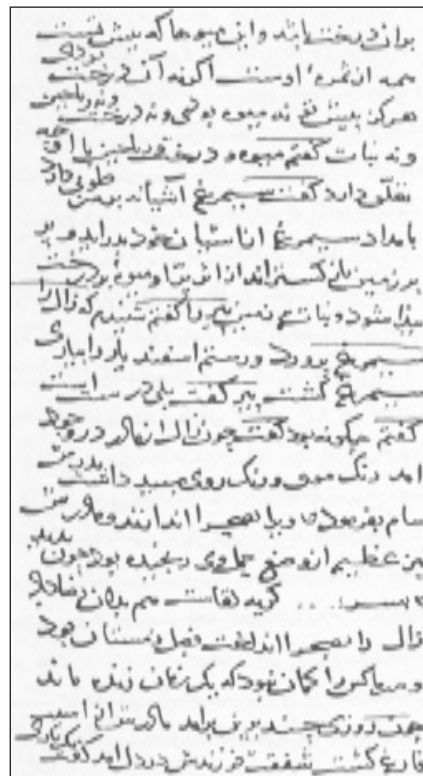 بران درخت باشد و این میوها که پیش تست
همه از ثمره او ست اگر نه آن درخت بودی
هرگز پیش تو نه میوه بودی و نه درخت و نه ریاحین
و نه نبات گفتم میوه و درخت و ریاحین با او چه
تعلق دارد گفت سیمرغ آشیانه بر سر طوبی دارد
بامداد سیمرغ از آشیان خود بدر آید و پر
بر زمین باز گستراند از اثر پر او میوه بر درخت
پیدا شود و نبات بر زمین پیر را گفتم شنیدم که زال را
سیمرغ پرورد و رستم اسفندیار را بیاری
سیمرغ کشت پیر گفت بلی درست است
گفتم چگونه بود گفت چون زال از مادر در وجود
امد رنگ موی و رنگ روی سپید داشت پدرش
سام بفرمود که ویرا بصحرا اندازند و مادرش
نیز عظیم از وضع حمل وی رنجیده بود چون بدید
که پسر ... کریه لقاست هم بدان رضا داد
زال را بصحرا انداختند فصل زمستان بود
و سرما کس را گمان نبود که یک زمان زنده ماند
چون روزی چند برین برامد مادرش از آسیب
فارغ گشت شفقت فرزندش در دل امد گفت یکباری